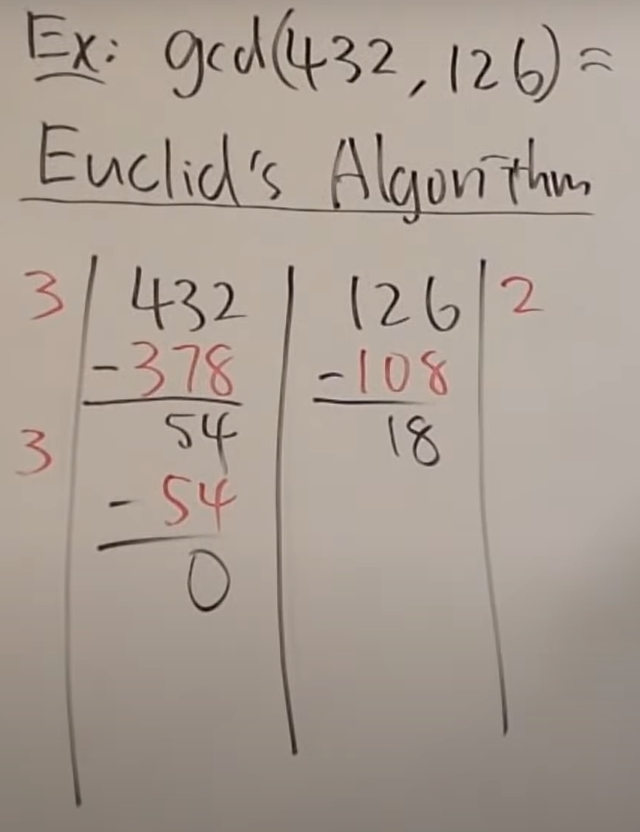 Ex: gcd(432, 126) =
Euclid's Algorithm
3 | 432 | 126 | 2
-378 -108
3 54 18
-54
0